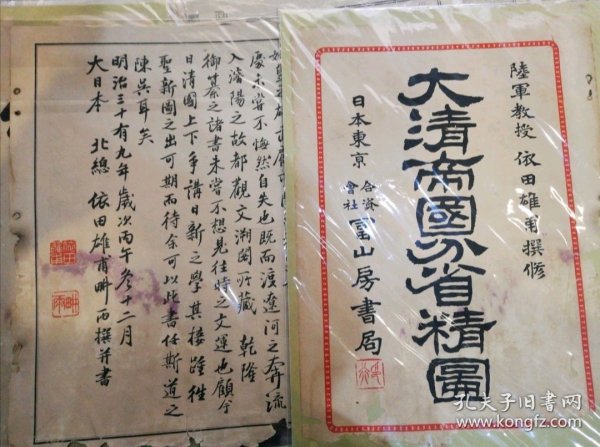 陸軍教授 依田雄甫撰修
大清帝國分省精圖
日本東京 合資會社 冨山房書局
慶未嘗不悔然自失也既而渡遼河之奔流
入瀋陽之故都觀文溯閣所藏 乾隆
御纂之諸書未嘗不想見往時之文運也顧今
日清國上下爭講日新之學其接踵徃
聖新圖之出可期而待余可以此書任斯道之
陳吳耳矣
明治三十有九年歲次丙午冬十二月
大日本 北總 依田雄甫 撰并書
孔夫子旧书网
www.kongfz.com